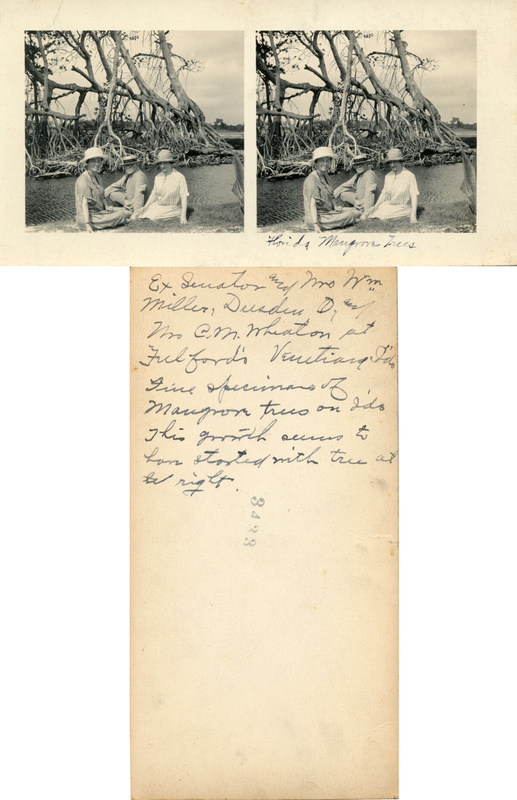 Florida Mangrove Trees
Ex Senator and Mrs Wm
Miller, Dresden O, and
Mrs C.M. Wheaton at
Fulford's Venetian Ids
Fine specimans of
Mangrove trees on Ids
This growth seems to
have started with tree at
right.
3493